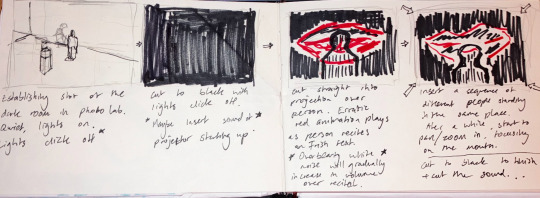 Establishing shot of the
dark room in photo lab.
Quiet, lights on.
Lights click off *
cut to black with
lights click off.
* Maybe insert sound of *
projector starting up.
cut straight into
projection over
person. Erratic
red animation plays
as person recites
an Irish text.
* Overbearing white *
noise will gradually
increase in volume
over recital.
insert a sequence of
different people standing
in the same place.
After a while, start to
pan/zoom in, focusing
on the mouth.
cut to black to finish
+ cut the sound...